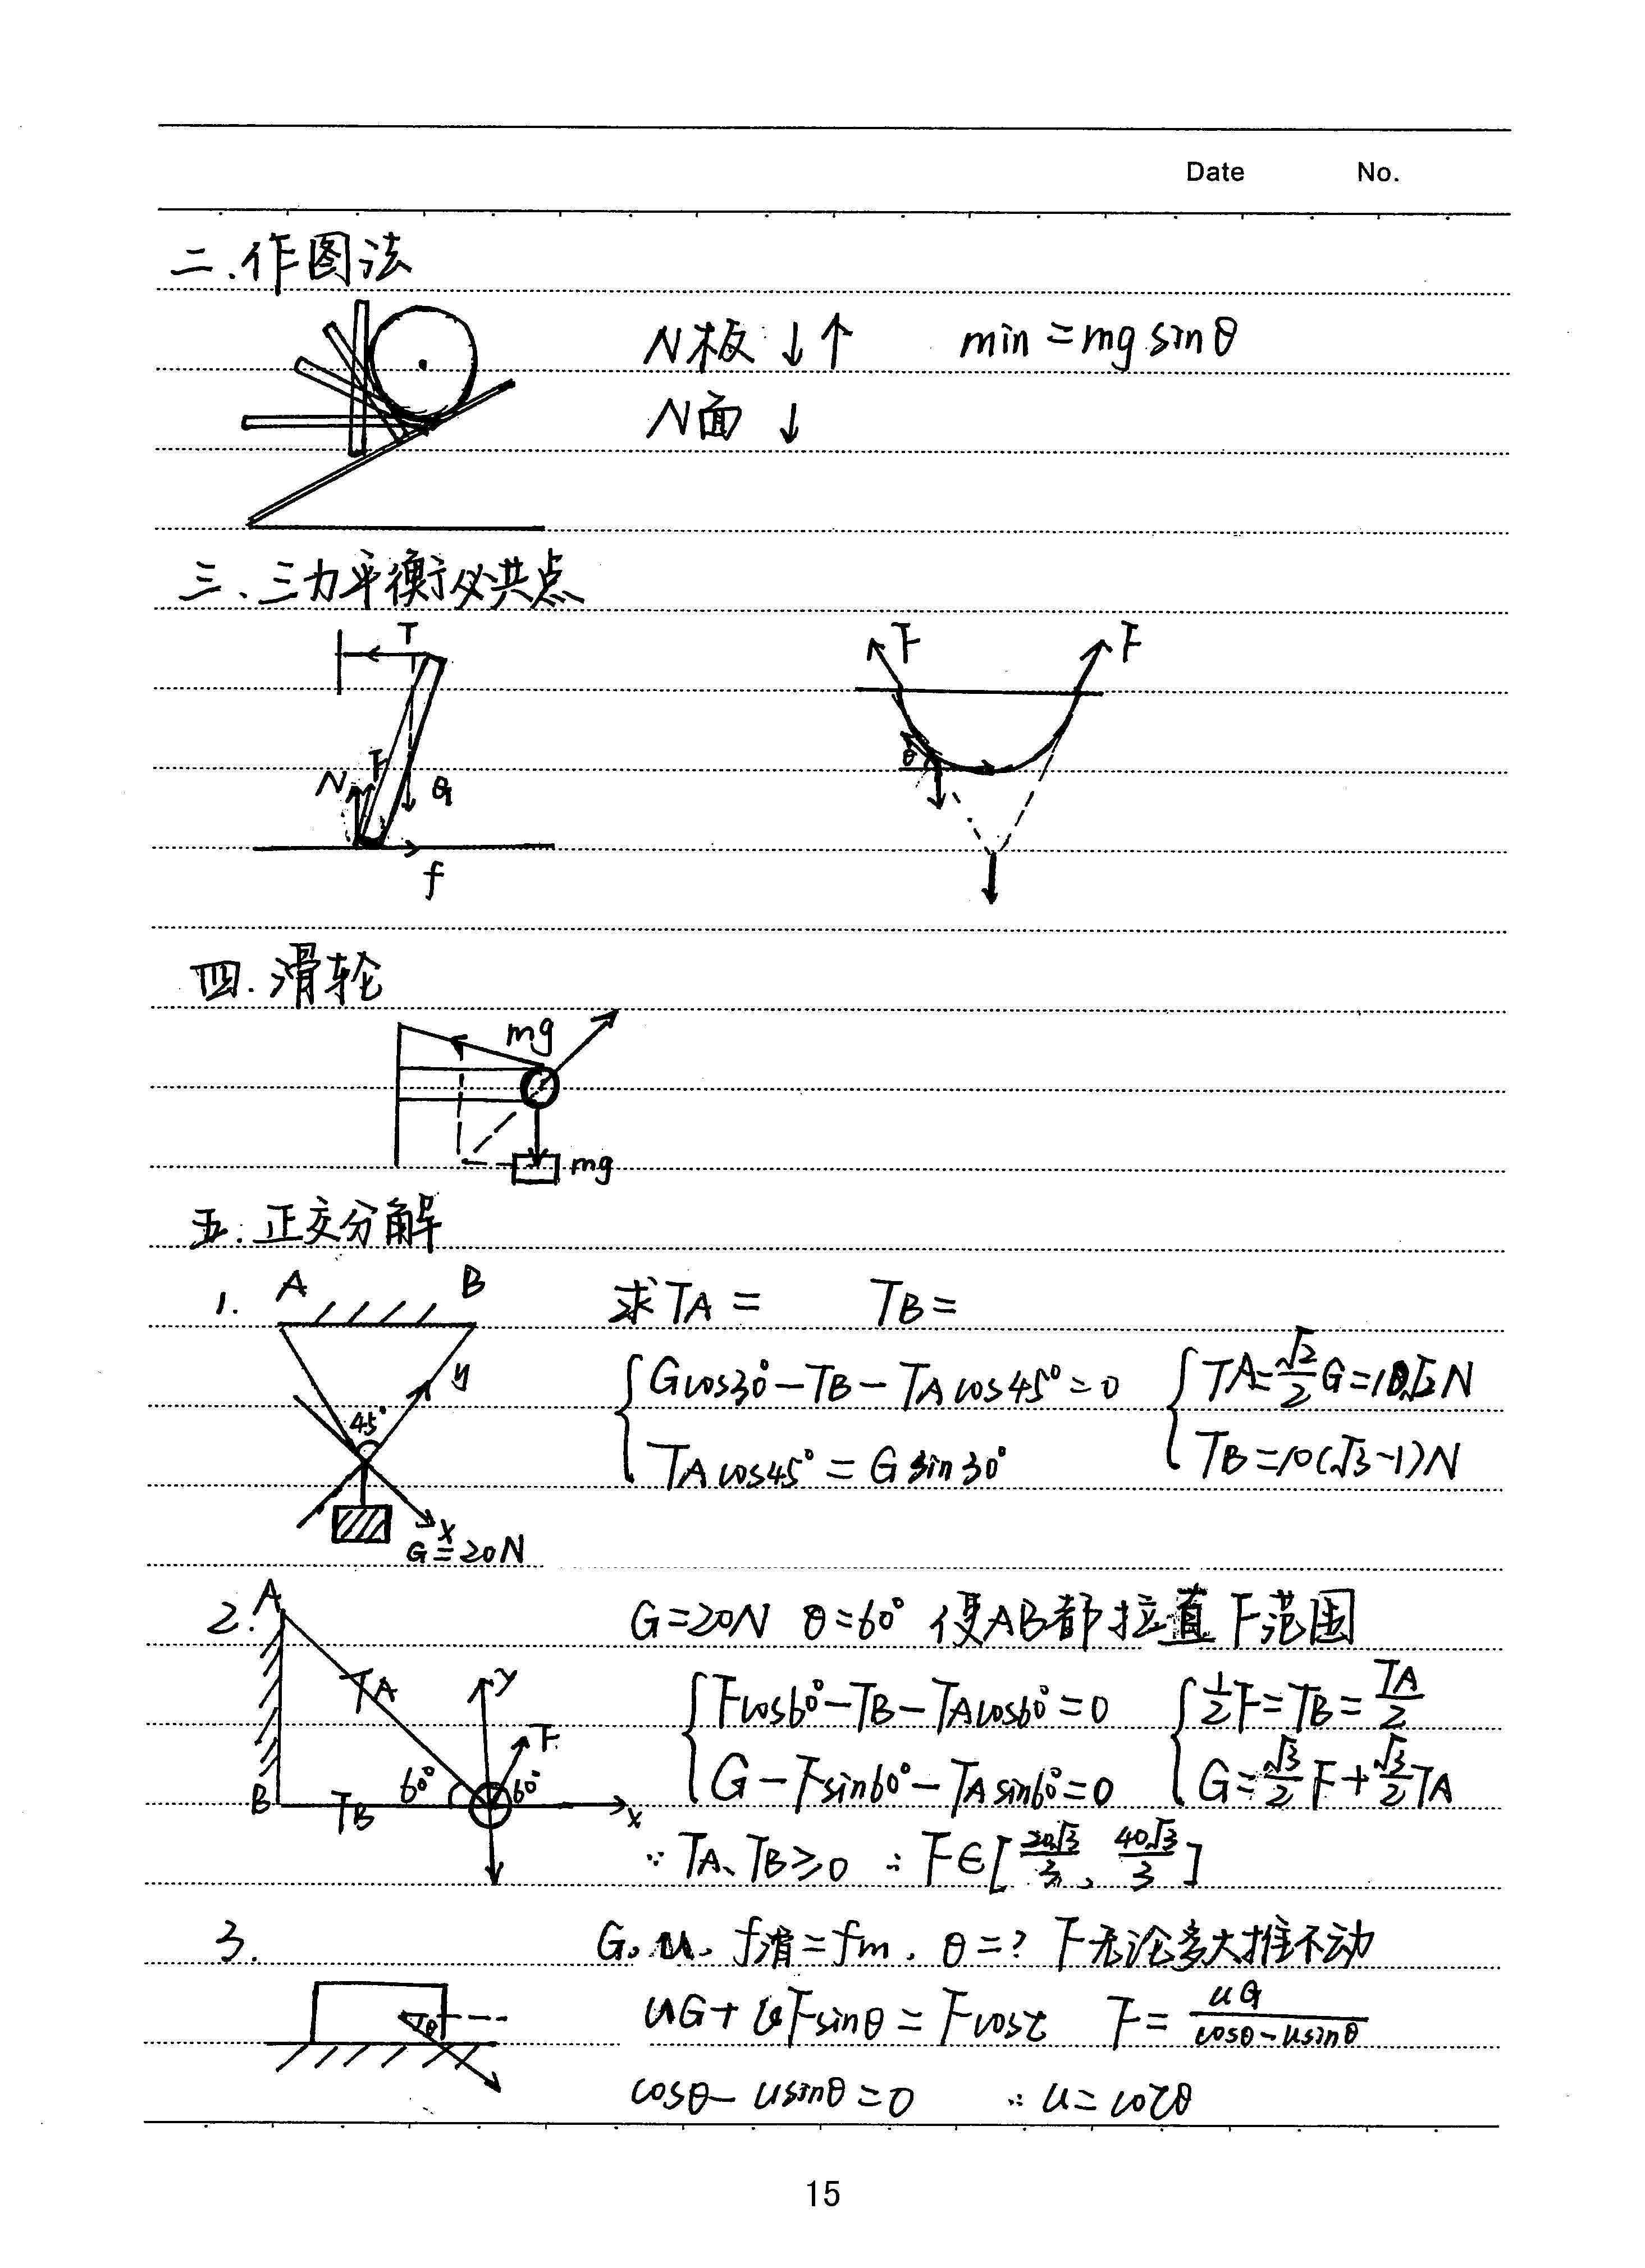 Date No.
二.作图法
N板 ↓↑ min = mg sinθ
N面 ↓
三、三力平衡必共点
T
N F G
f
F F
θ
四.滑轮
mg
mg
五.正交分解
1. A B 求TA = TB =
y
45°
x
G=20N
{Gcos30°-TB-TAcos45°=0
TAcos45°=Gsin30°
{TA=√2/2 G=10√2N
TB=10(√3-1)N
2. A G=20N θ=60° 使AB都拉直 F范围
TA y F
B TB 60° 60° x
{Fcos60°-TB-TAcos60°=0
G-Fsin60°-TAsin60°=0
{1/2 F=TB=TA/2
G=√3/2 F+√3/2 TA
∵ TA、TB≥0 ∴ F∈[20√3/3, 40√3/3]
3. G. u. f滑=fm. θ=? F无论多大推不动
θ
uG+uFsinθ=Fcost F=uG/cosθ-usinθ
cosθ-usinθ=0 ∴ u=cotθ
15